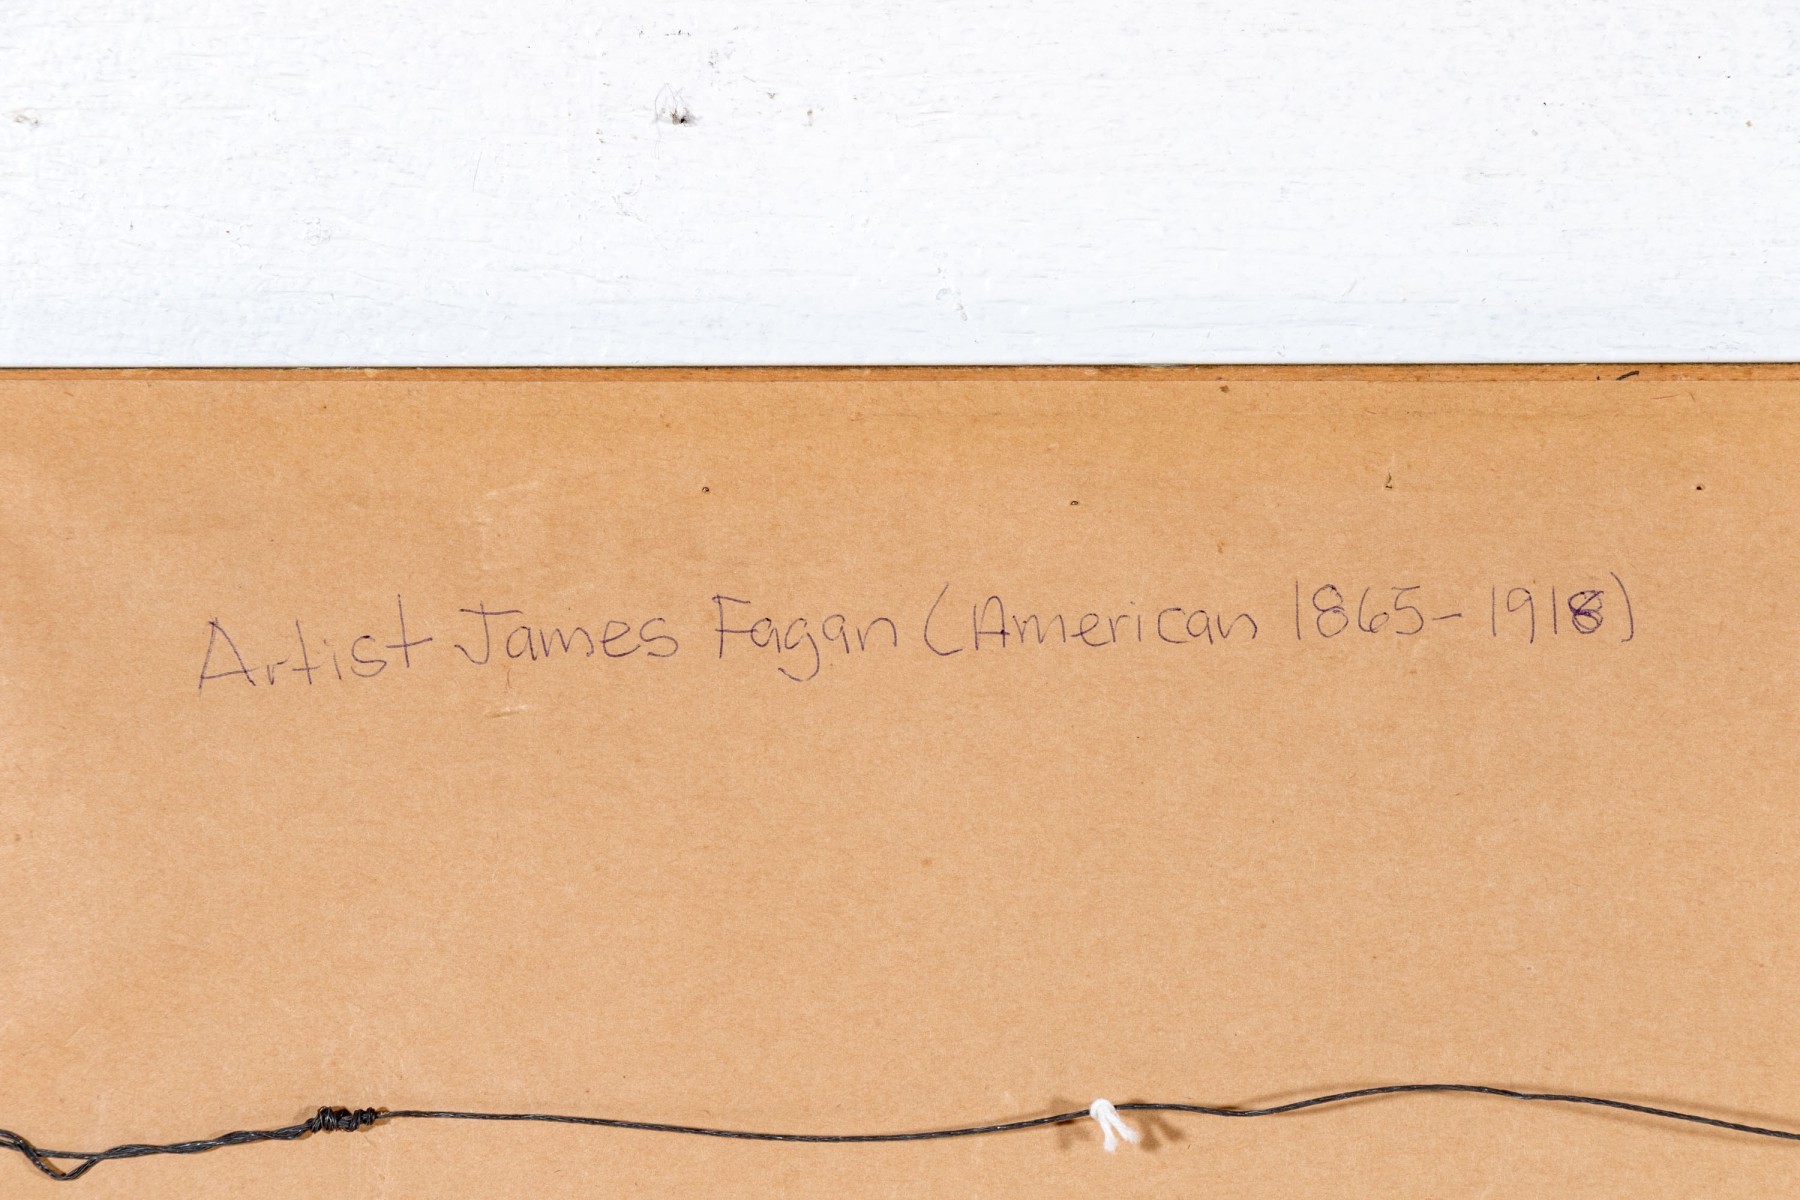 Artist James Fagan (American 1865-1918)